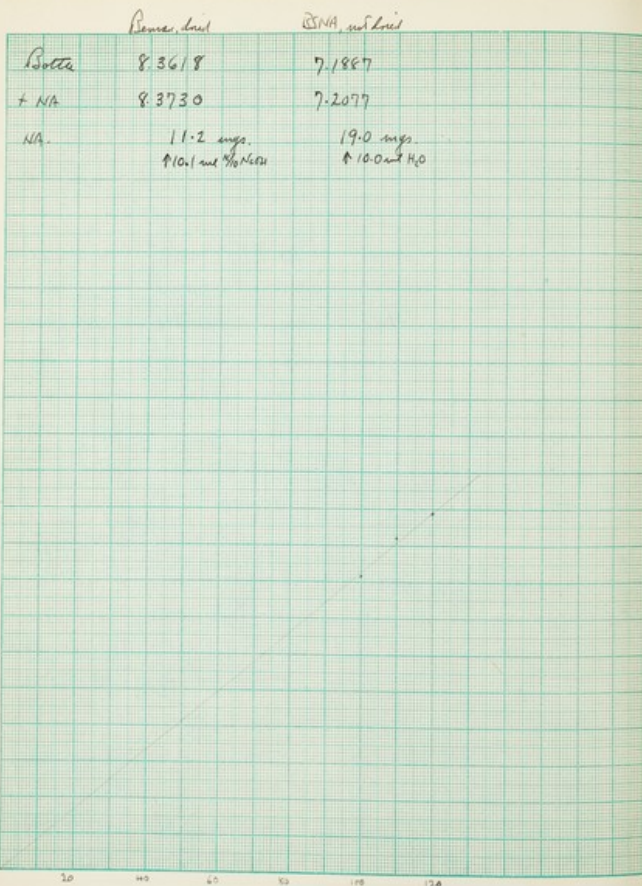 dried BSNA, not dried
Bottle 8.3618 7.1887
+ NA 8.3730 7.2077
NA. 11.2 mgs. 19.0 mgs.
↑ 10.1 ml N/10 NaOH ↑ 10.0 ml H₂O
20 40 60 80 100 120